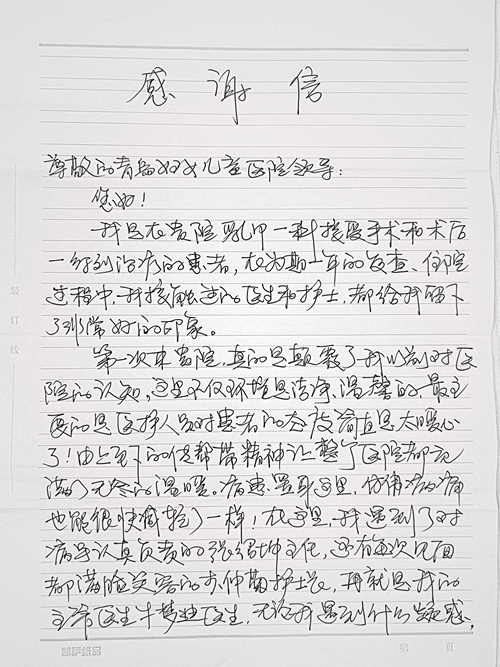 感谢信
尊敬的青岛妇女儿童医院领导：
您好！
我是在贵院乳甲一科接受手术和术后
一系列治疗的患者，在为期一年的复查、住院
过程中，我接触过的医生和护士，都给我留下
了非常好的印象。
第一次来贵院，真的是颠覆了我以前对医
院的认知，这里不仅环境是洁净、温馨的，最主
要的是医护人员对患者的态度简直是太暖心
了！由上至下的传帮带精神让整个医院都充
满了无尽的温暖。病患置身这里，仿佛病痛
也能很快痊愈了一样！在这里，我遇到了对
病患认真负责的张绍坤主任，还有每次见面
都满脸笑容的 护士长，再就是我的
主管医生牛梦 医生，无论我遇到什么疑惑，
装
订
线
凯萨纸品
第 页